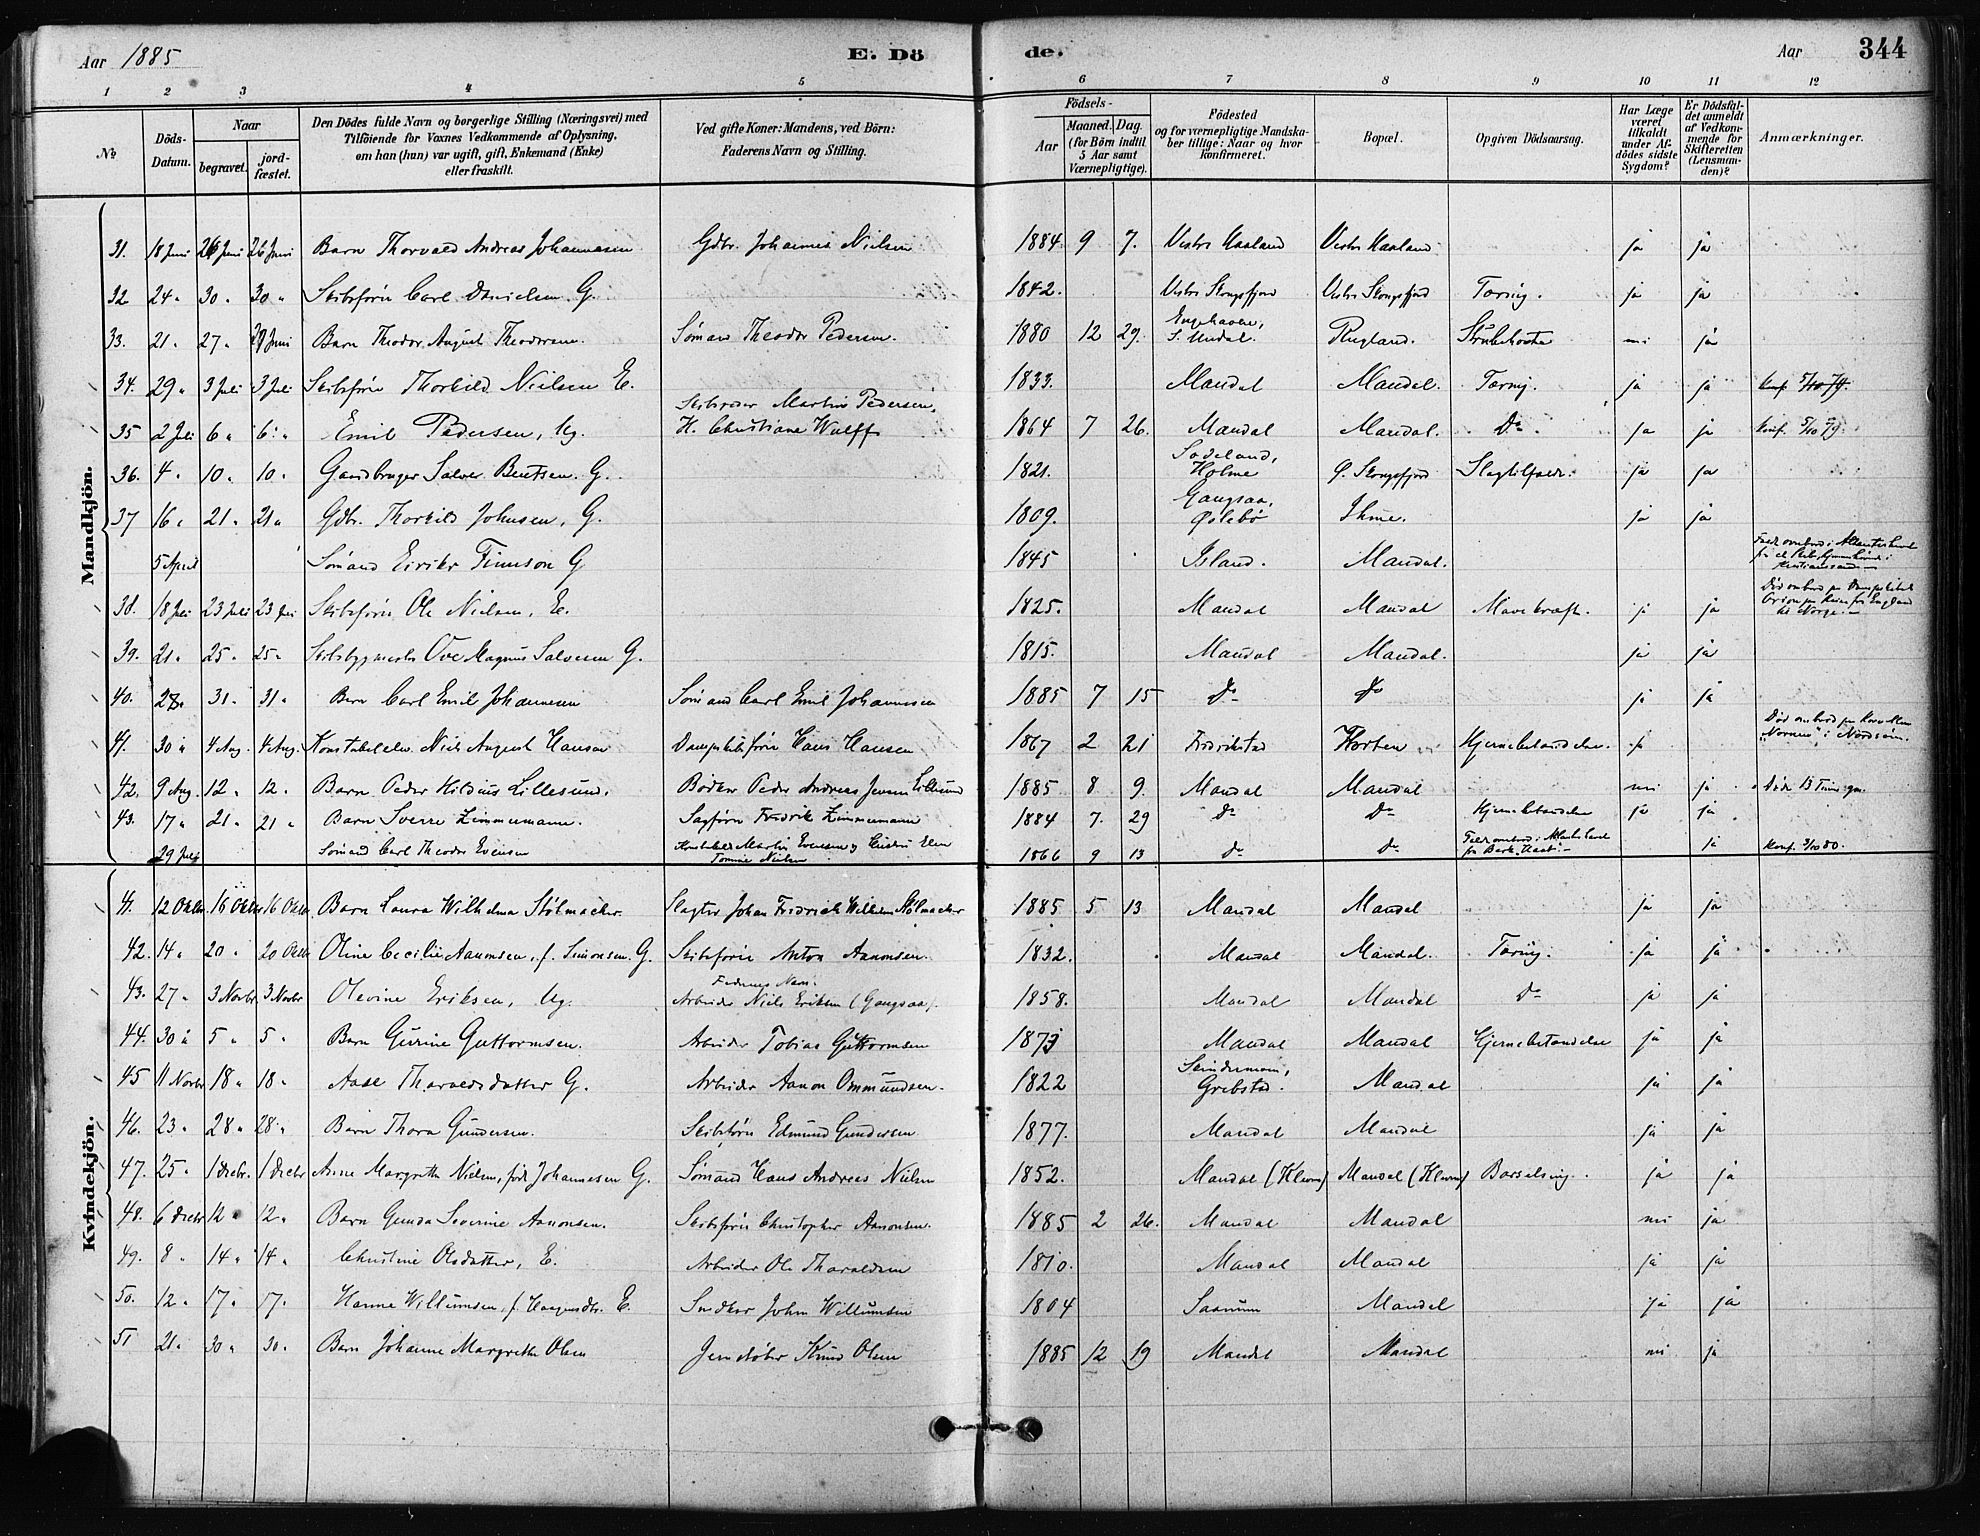 Aar 1885 E. Dö de. Aar 344
1 2 3 4 5 6 7 8 9 10 11 12
No
Döds-Datum.
Naar
begravet.
jord-fæstet.
Den Dödes fulde Navn og borgerlige Stilling (Næringsvei) med
Tilföiende for Voxnes Vedkommende af Oplysning,
om han (hun) var ugift, gift, Enkemand (Enke)
eller fraskilt.
Ved gifte Koner: Mandens, ved Börn:
Faderens Navn og Stilling.
Födsels-
Aar
Maaned. Dag.
(for Börn indtil
5 Aar samt
Værnepligtige).
Födested
og for værnepligtige Mandska-
ber tillige: Naar og hvor
konfirmeret.
Bopæl.
Opgiven Dödsaarsag.
Har Læge
været
tilkaldt
under Af-
dödes sidste
Sygdom?
Er Dödsfal-
det anmeldt
af Vedkom-
mende for
Skifteretten
(Lensman-
den)?
Anmærkninger.
Mandkjön.
31. 18 Juni 26 Juni 26 Juni Barn Thorvald Andreas Johannesen Gdbr. Johannes Nielsen 1884 9 7. Vestre Haaland Vestre Haaland ja ja
32 24 " 30 " 30 " Skibsförer Carl Danielsen G. 1842. Vestre Skogsfjord Vestre Skogsfjord Tæring. ja ja
33. 21 " 27 " 27 Juni Barn Theodor August Theodorsen. Sömand Theodor Pedersen. 1880 12 29. S. Undal. Rugland. Strubehoste nei ja
34. 29 " 3 Juli 3 Juli Skibsförer Thorkild Nielsen E. 1833. Mandal Mandal. Tæring. ja ja
35 2 Juli 6 " 6 " Emil Pedersen, Ug. Skibsreder Martin Pedersen, H. Christiane Wulff 1864 7 26. Mandal Mandal. Do ja ja Konf. 5/10 79.
36. 4 " 10 " 10 " Gaardbruger Salve Bentsen. G. 1821. Holme Ø. Skogsfjord Slagtilfælde. ja ja
37 16 " 21 " 21 " Gdbr. Thorkild Johnsen, G. 1809. Øslebö Ihme. ja ja
5 April Sömand Eirikr Finnson G 1845 Island. Mandal.
38. 18 Juli 23 Juli 23 Juli Skibsförer Ole Nielsen, E. 1825. Mandal Mandal Mavekræft. ja ja
39. 21 " 25 " 25 " Skibsbygmester Ove Magnus Salvesen G. 1815. Mandal Mandal. ja ja
40. 28 " 31 " 31 " Barn Carl Emil Johannesen Sömand Carl Emil Johannesen 1885 7 15 Do Do ja ja
41. 30 " 4 Aug. 4 Aug. Konstabelelev Niels August Hansen Dampskibsförer Hans Hansen 1867 2 21 Fredrikstad Horten Hjernebetændelse. ja
42. 9 Aug. 12 " 12 " Barn Peder Lillesund. Bödker Peder Andreas Jensen Lillesund 1885 8 9. Mandal Mandal nei ja
43. 17 " 21 " 21 " Barn Sverre Zimmermann. Sagförer Fredrik Zimmermann 1884 7. 29 Do Do Hjernebetændelse ja ja
29 Juli Sömand Carl Theodor Evensen 1866 9 13 Do Do ja Konf. 3/10 80.
Kvindekjön.
41. 12 Oktbr. 16 Oktbr 16 Oktbr Barn Laura Wilhelmine Stölmacker. Slagter Johan Fredrick Wilhelm Stölmacker 1885 5 13 Mandal Mandal ja ja
42. 14 " 20 " 20 Oktbr Oline Cecilie Aanonsen, f. Simonsen G. Skibsförer Anton Aanonsen. 1832. Mandal Mandal. Tæring. ja ja
43. 27 " 3 Novbr. 3 Novbr Olevine Eriksen, Ug. Faderens Navn: Arbeider Niels Eriksen (Gangsaa). 1858. Mandal Mandal Do ja ja
44. 30 " 5 " 5 " Barn Gurine Guttormsen. Arbeider Tobias Guttormsen 1873 Mandal Mandal Hjernebetændelse ja ja
45 11 Novbr 18 " 18 " Aase Tharaldsdatter G. Arbeider Aanon Ommundsen. 1822 Grebstad. Mandal ja ja
46. 23 " 28 " 28 " Barn Thora Gundersen. Skibsförer Edmund Gundersen 1877. Mandal Mandal ja ja
47. 25 " 1 Decbr. 1 Decbr Anne Margrethe Nielsen, född Johannesen G. Sömand Hans Andreas Nielsen 1852. Mandal (Kleven) Mandal (Kleven) Barselseng. ja ja
48. 6 Decbr 12 " 12 " Barn Gunda Severine Aanonsen. Skibsförer Christopher Aanonsen. 1885 2 26. Mandal Mandal nei ja
49. 8 " 14 " 14 " Christine Olsdatter, E. Arbeider Ole Tharaldsen 1810. Mandal Mandal ja ja
50. 12 " 17 " 17. Hanne Willumsen, f. E. Snedker John Willumsen 1804 Mandal ja ja
51 21 " 30 " 30 " Barn Johanne Margrethe Olsen Jernstöber Knud Olsen 1885 12 19 Mandal Mandal nei ja